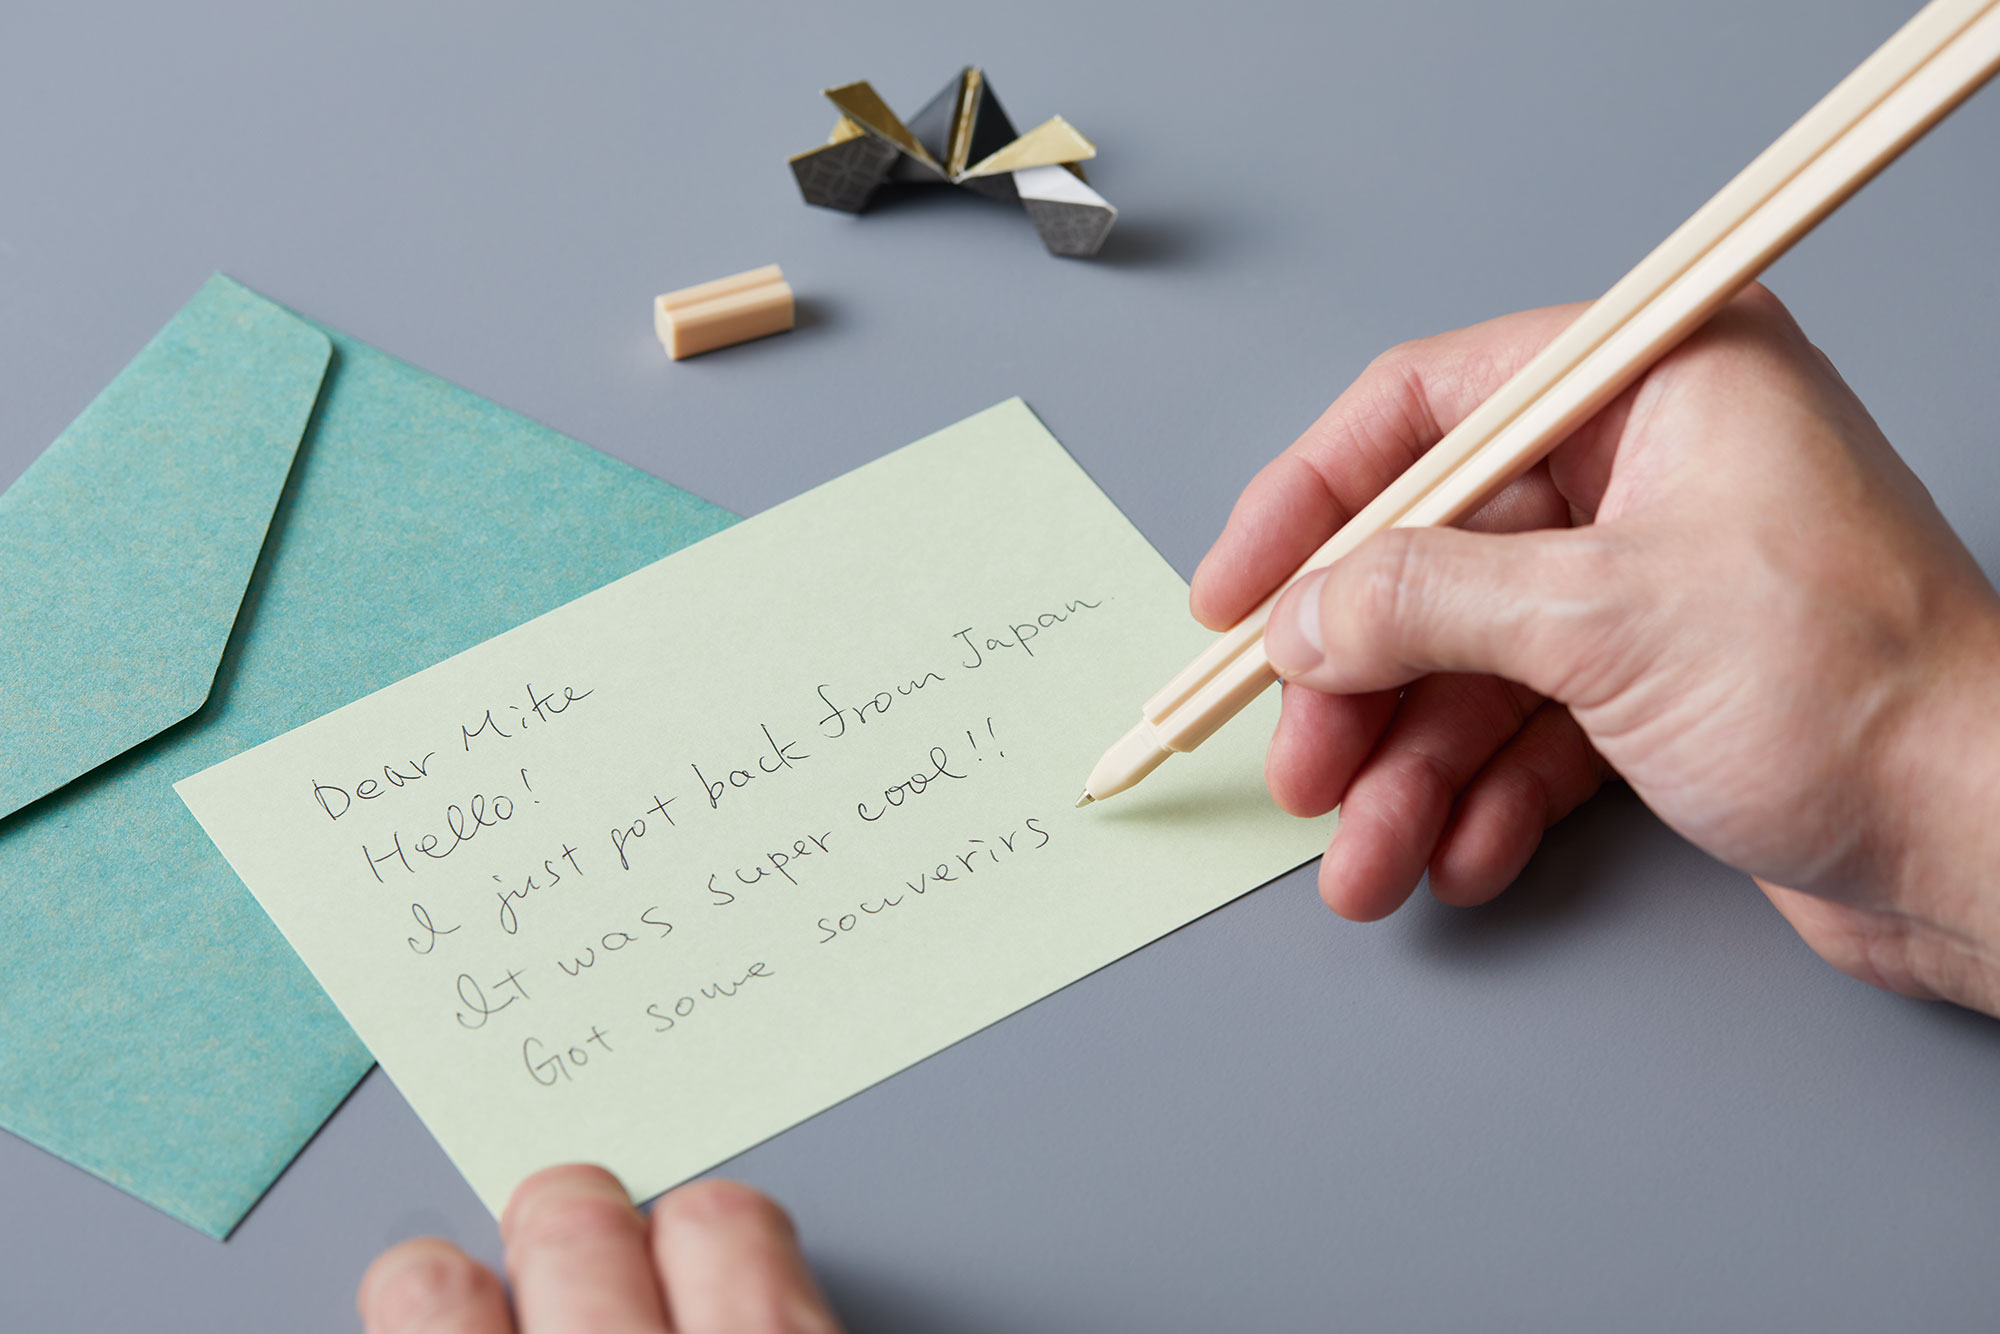 Dear Mike
Hello!
I just got back from Japan.
It was super cool!!
Got some souverirs